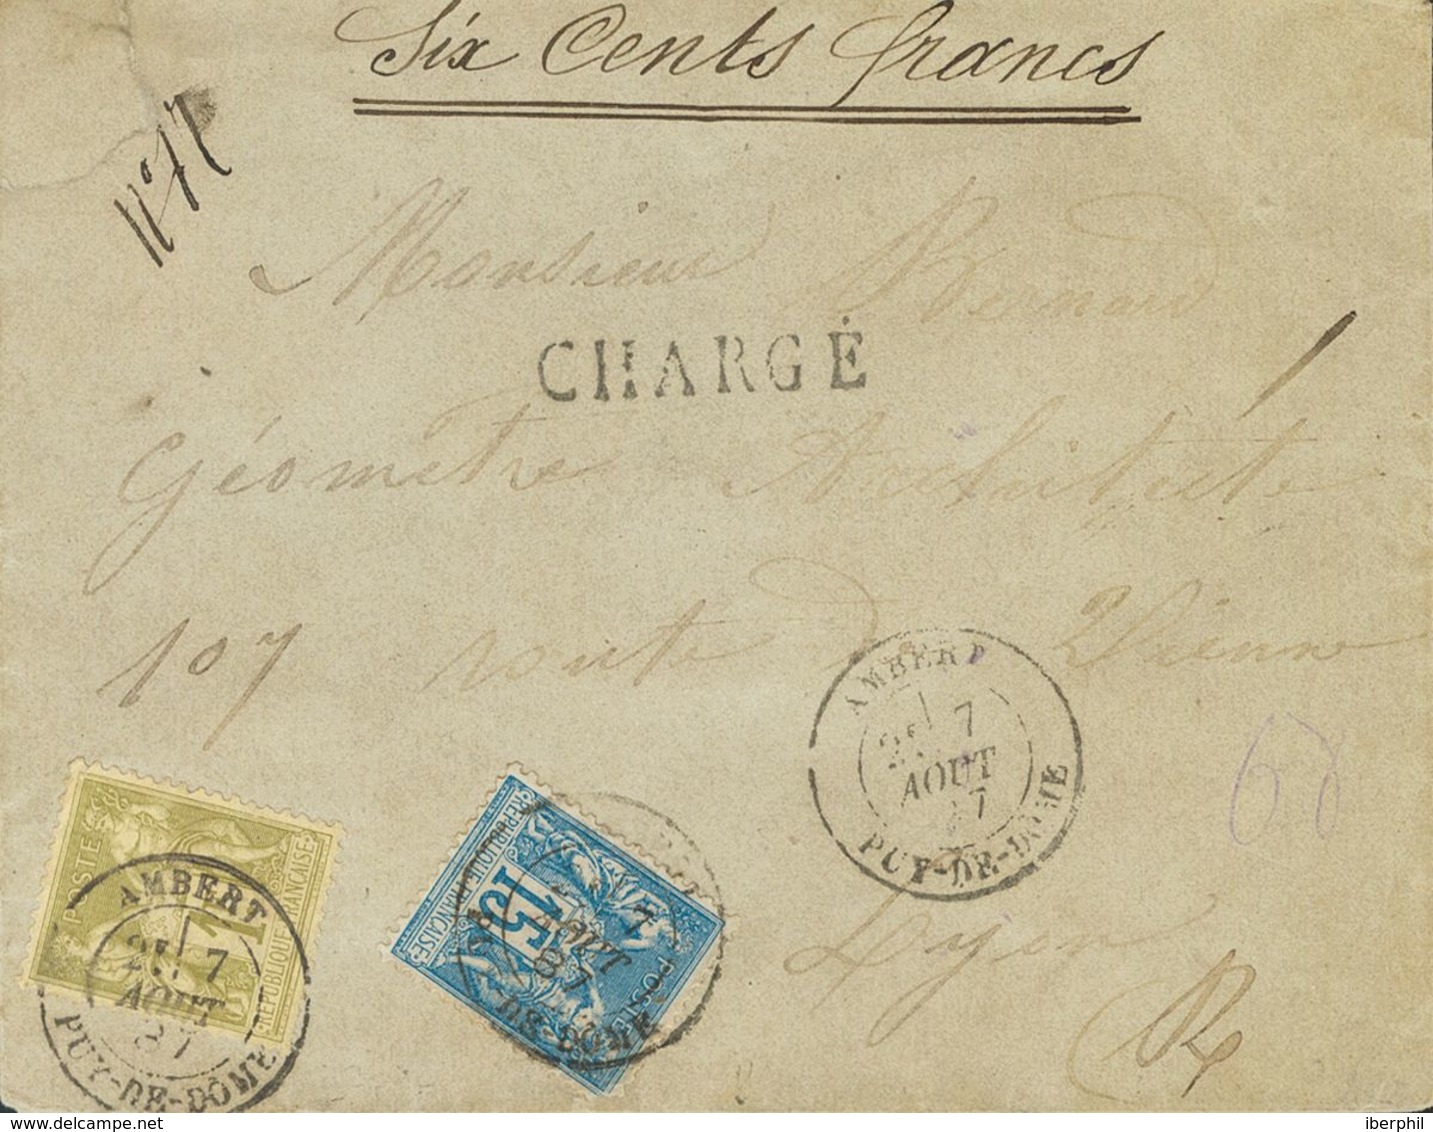 Six Cents francs
Monsieur Bernard
CHARGÉ
Géomètre Architecte
107 route de Vienne
AMBERT
7
AOUT
87
PUY-DE-DOME
Lyon
R
68
POSTE
1
REPUBLIQUE FRANÇAISE
AMBERT
7
AOUT
87
PUY-DE-DOME
REPUBLIQUE FRANÇAISE
15
POSTE
7
AOUT
87
iberphil